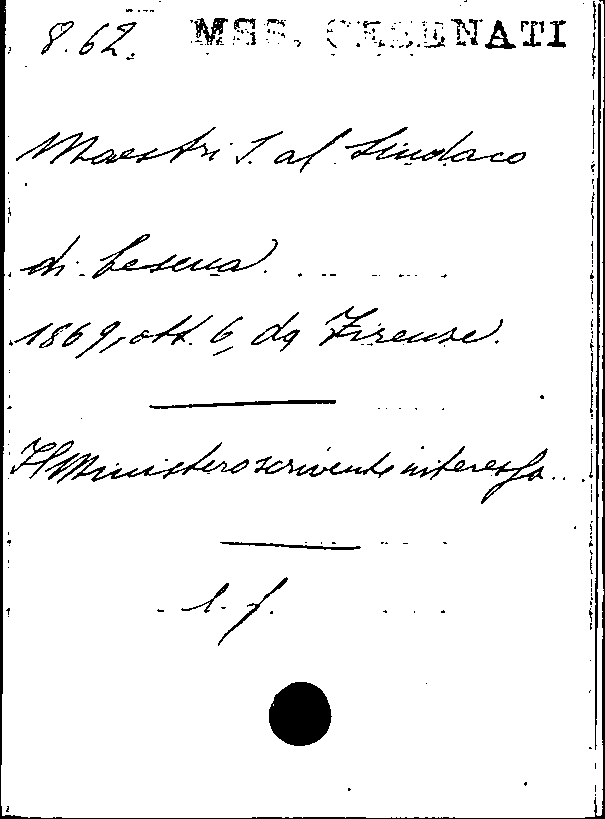 8.62. MSS. CESENATI
Maestri S. al Sindaco
di Cesena.
1869, ott. 6, da Firenze.
Il Ministero scrivente interessa...
l. f.